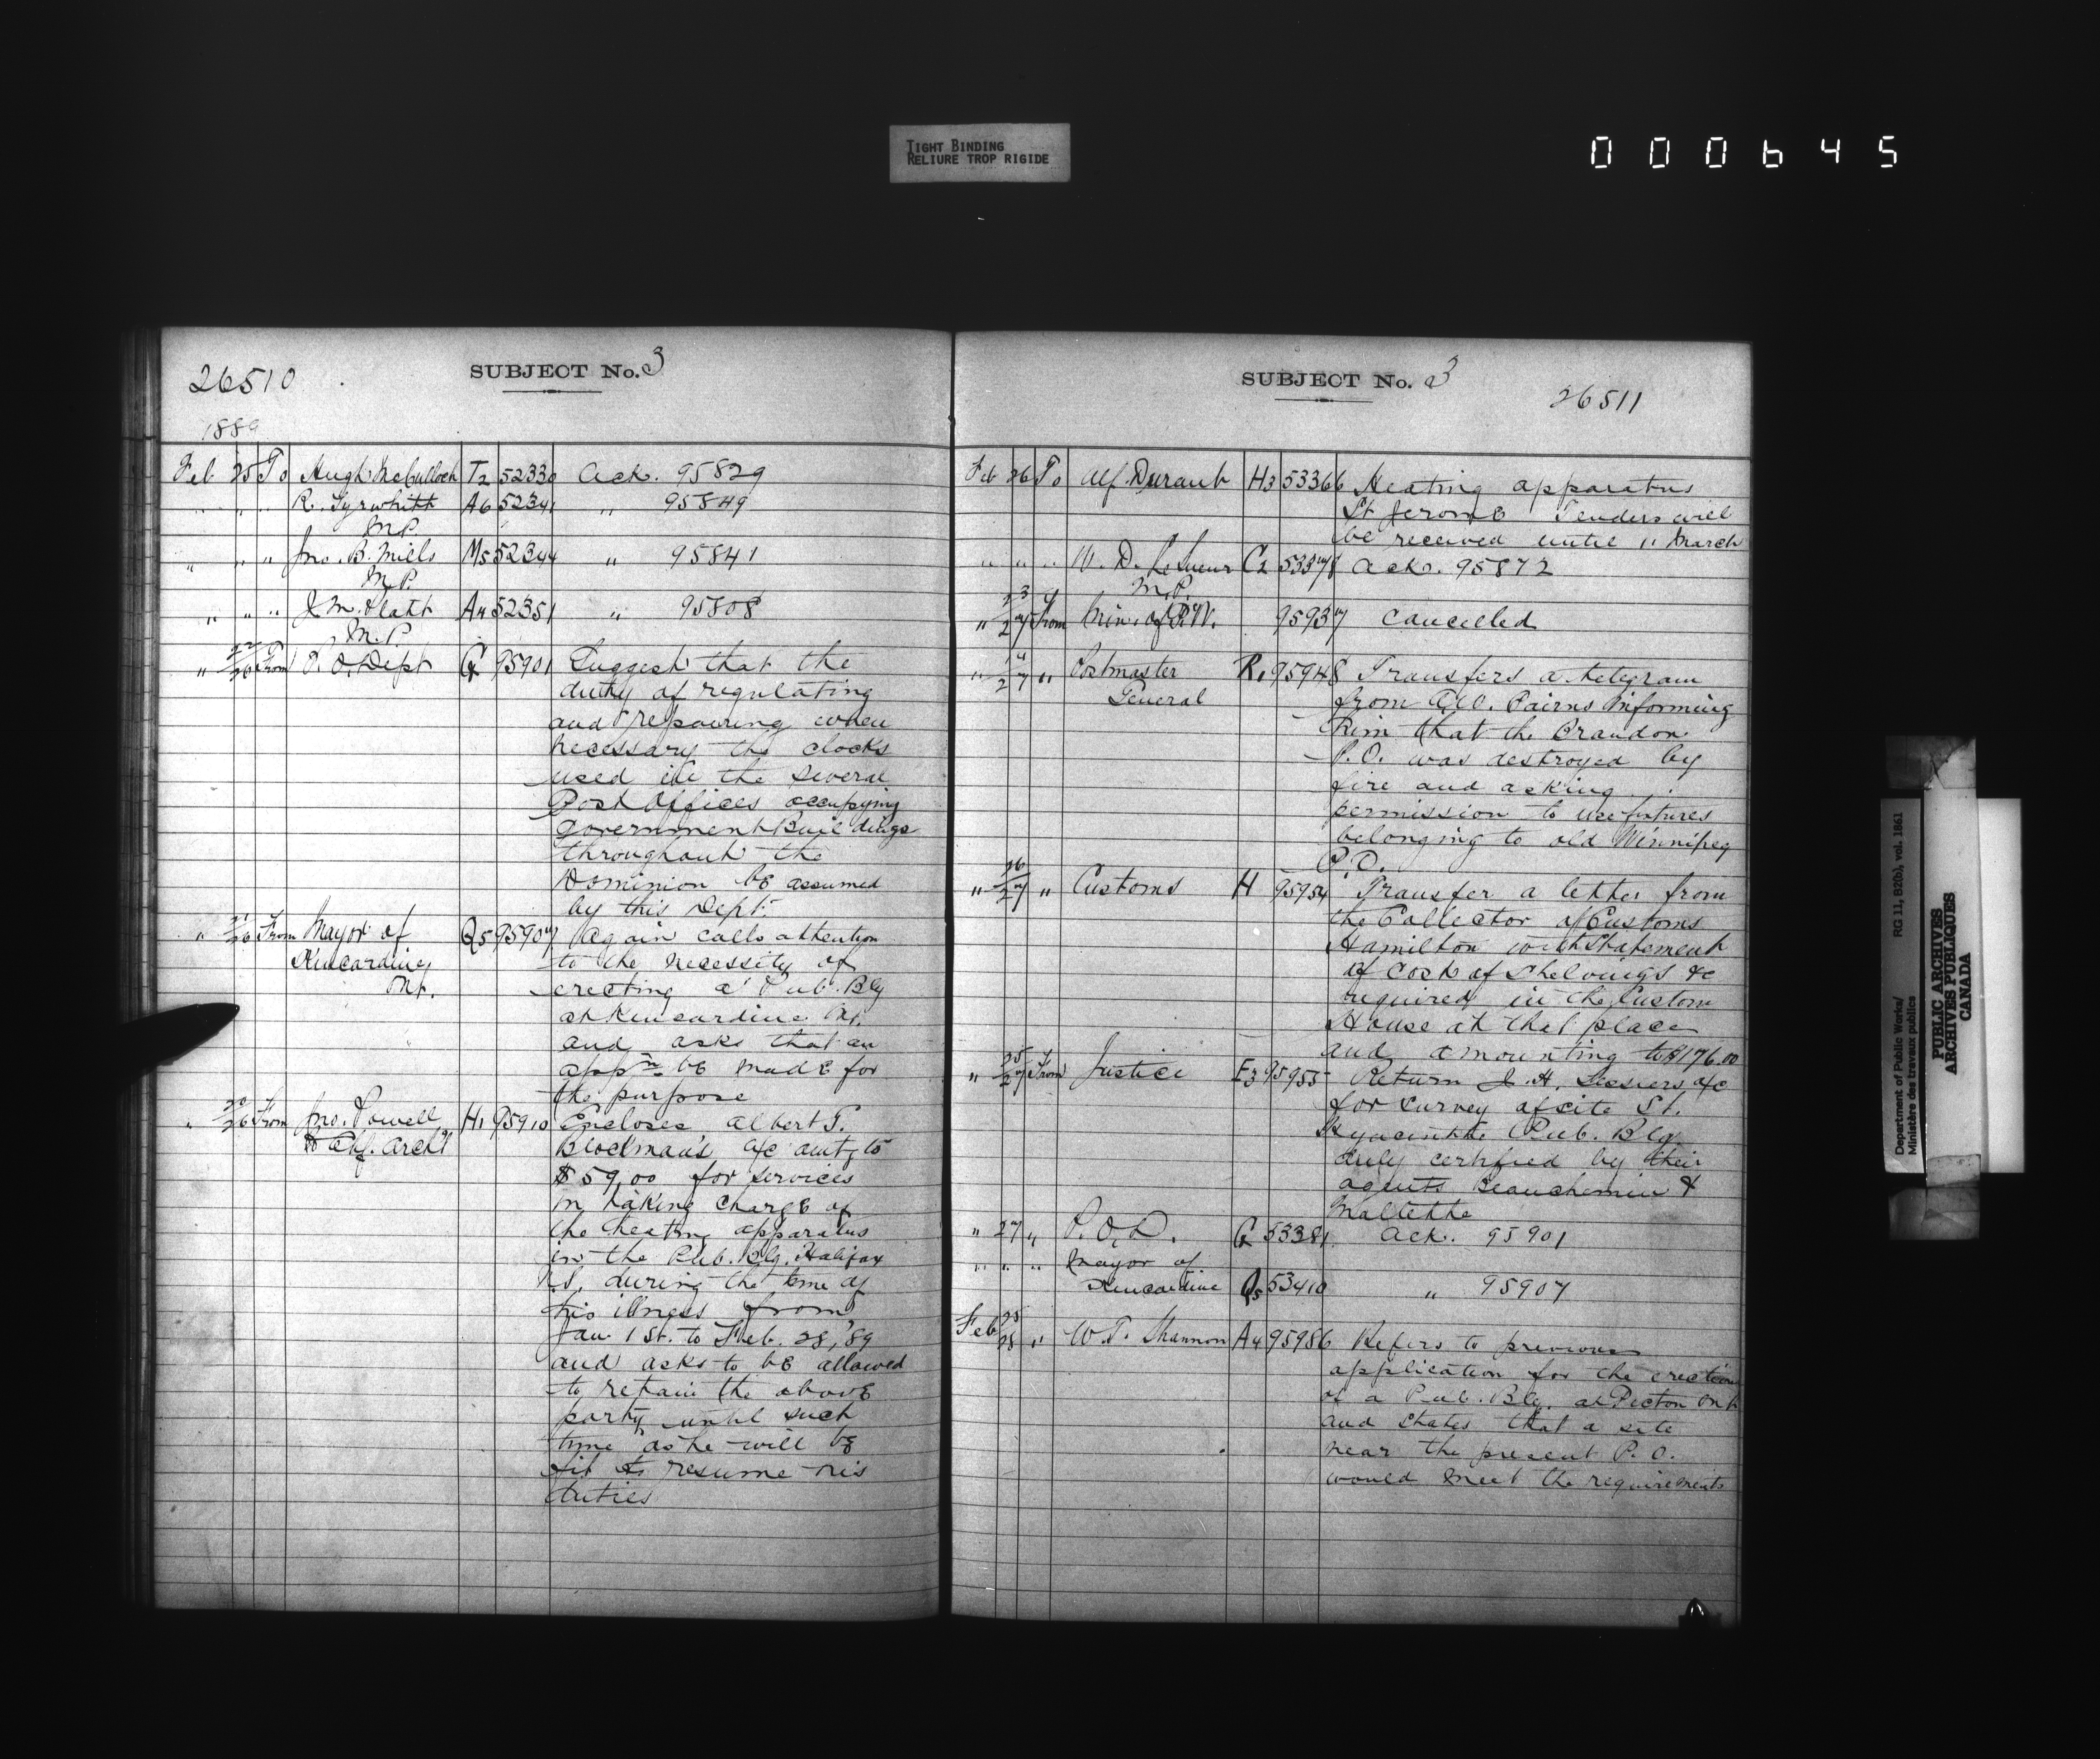 TIGHT BINDING
RELIURE TROP RIGIDE
000645
26510
SUBJECT No. 3
1889
Feb 25 To Hugh McCulloch T2 52330 Ack. 95829
" " " R. Tyrwhitt A6 52341 " 95849
M.P.
" " " Jno. B. Mills M5 52344 " 95841
M.P.
" " " J. M. Platt A4 52351 " 95808
M.P.
" 22/26 From P. O. Dept G 95901 Suggest that the
duty of regulating
and repairing when
necessary the clocks
used in the several
Post Offices occupying
government Buildings
throughout the
Dominion be assumed
by this Dept.
" 21/26 From Mayor of Q5 95907 Again calls attention
Kincardine, to the necessity of
Ont. erecting a Pub. Blg
at Kincardine Ont.
and asks that an
appn be made for
the purpose
" 26 From Jno. Powell H1 95910 Encloses Albert T.
Chf. Archt Blockman's a/c amtg to
$59.00 for services
in taking charge of
the heating apparatus
in the Pub. Blg. Halifax
N.S. during the time of
his illness from
Jan. 1st. to Feb. 28, '89
and asks to be allowed
to retain the above
party until such
time as he will be
fit to resume his
duties
SUBJECT No. 3
26511
Feb 26 To Alf. Durand H3 53366 Heating apparatus
St Jerome Tenders will
be received until 11 March
" " " W. D. LeSueur C2 53378 Ack. 95872
M.P.
" 23/27 From Min. of P.W. 95937 Cancelled
" 27 " Postmaster R1 95948 Transfers a telegram
General from Pairns informing
him that the Brandon
P.O. was destroyed by
fire and asking
permission to use fixtures
belonging to old Winnipeg
P.O.
" 26/27 " Customs H 95954 Transfer a letter from
the Collector of Customs
Hamilton with Statement
of cost of Shelvings &c
required in the Custom
House at that place
and amounting to $176.00
" 25/27 From Justice E3 95955 Return J. H. a/c
for survey of site St.
Hyacinthe Pub. Blg.
duly certified by their
agents Beauchemin &
Mallette
" 27 " P. O. D. G 53381 Ack. 95901
" " " Mayor of
Kincardine Q5 53410 " 95907
Feb 25/28 " W. T. Shannon A4 95986 Refers to previous
application for the erection
of a Pub. Blg. at Picton Ont
and states that a site
near the present P. O.
would meet the requirements
Department of Public Works/ RG 11, B2(b), vol. 1861
Ministère des travaux publics
PUBLIC ARCHIVES
ARCHIVES PUBLIQUES
CANADA